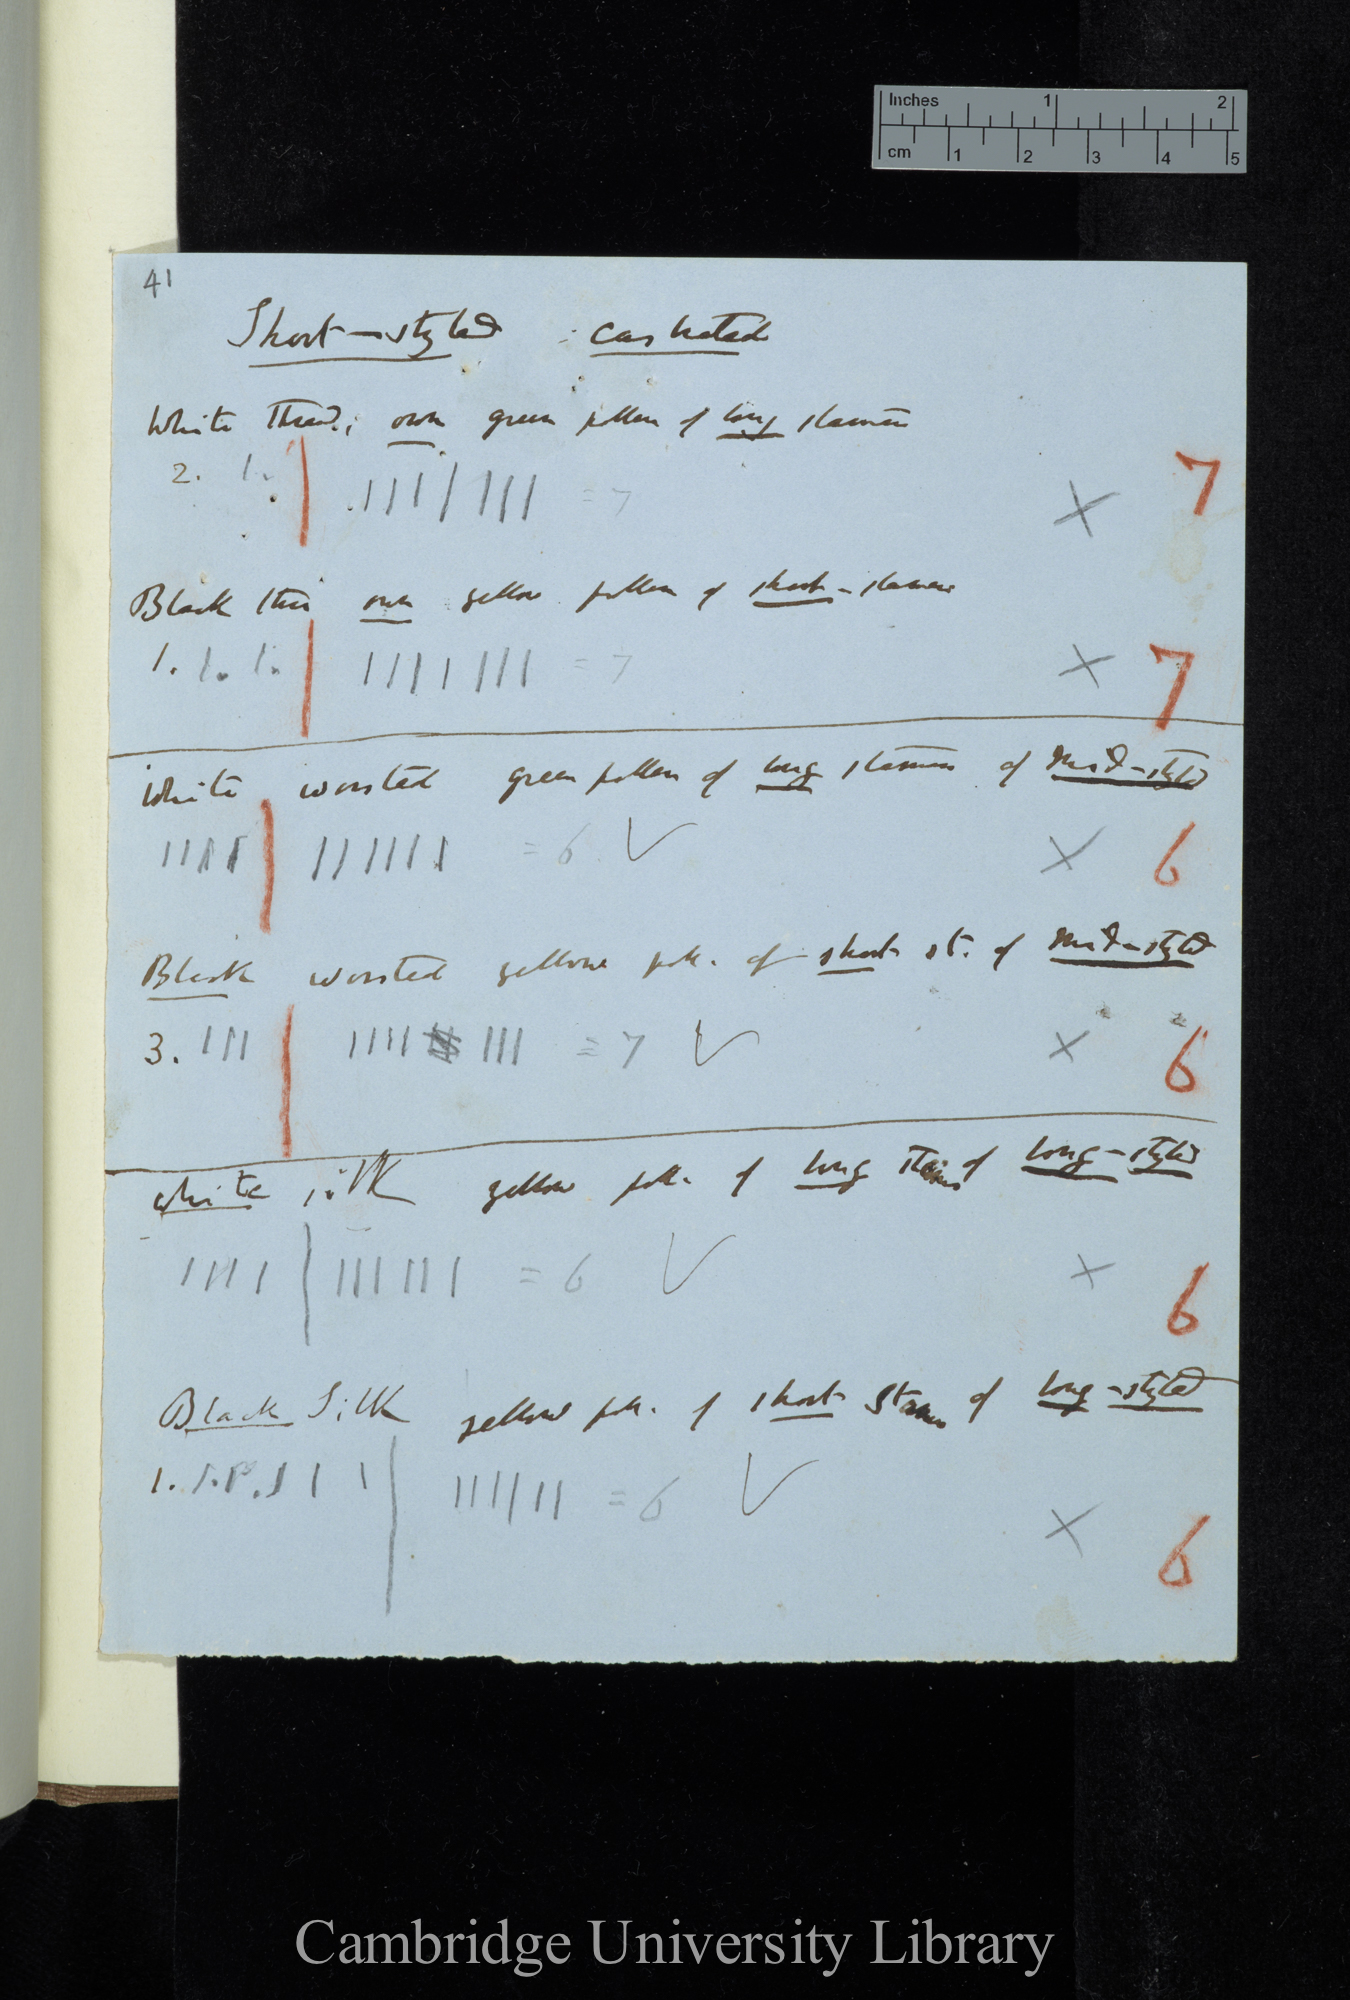 Inches 1 2
cm 1 2 3 4 5
41
Short-styled castrated
White Thread; own green pollen of long stamens
2. 1. | ||||||| = 7 × 7
Black own yellow pollen of short-stamens
1. 1. 1. | ||||||| = 7 × 7
White worsted green pollen of long stamens of Mid-styled
|||| | |||||| = 6 ✓ × 6
Black worsted yellow poll. of short st. of Mid-styled
3. ||| | |||| ||| = 7 ✓ × 6
White silk yellow poll. of long stamens of Long-styled
|||| | |||||| = 6 ✓ × 6
Black Silk yellow poll. of short Stamens of long-styled
1. | |||||| = 6 ✓ × 6
Cambridge University Library